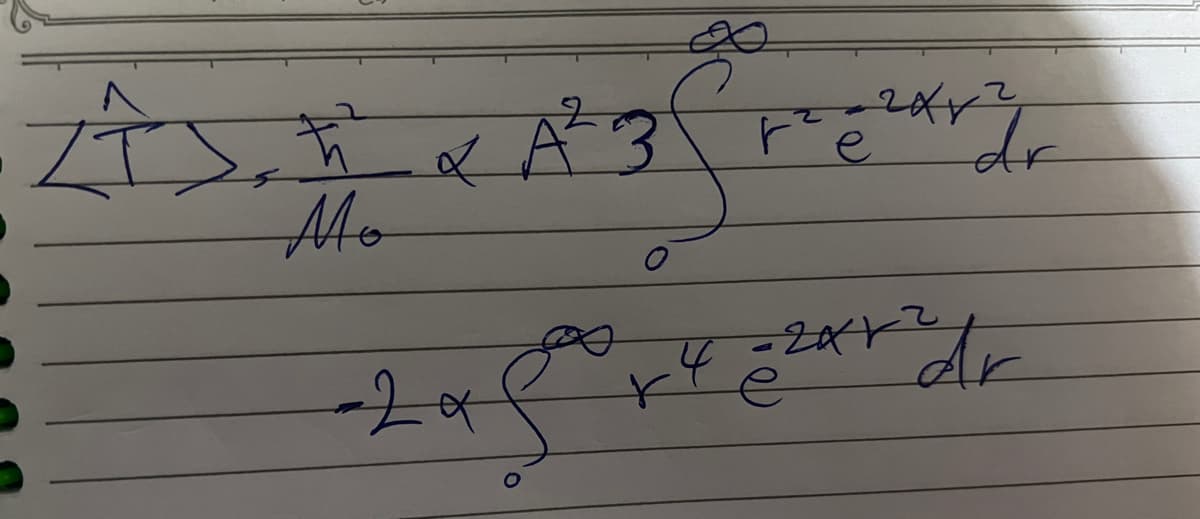 ⟨T̂⟩ = ħ²/M₀ α A² 3 ∫₀^∞ r² e^{-2αr²} dr
-2α ∫₀^∞ r⁴ e^{-2αr²} dr